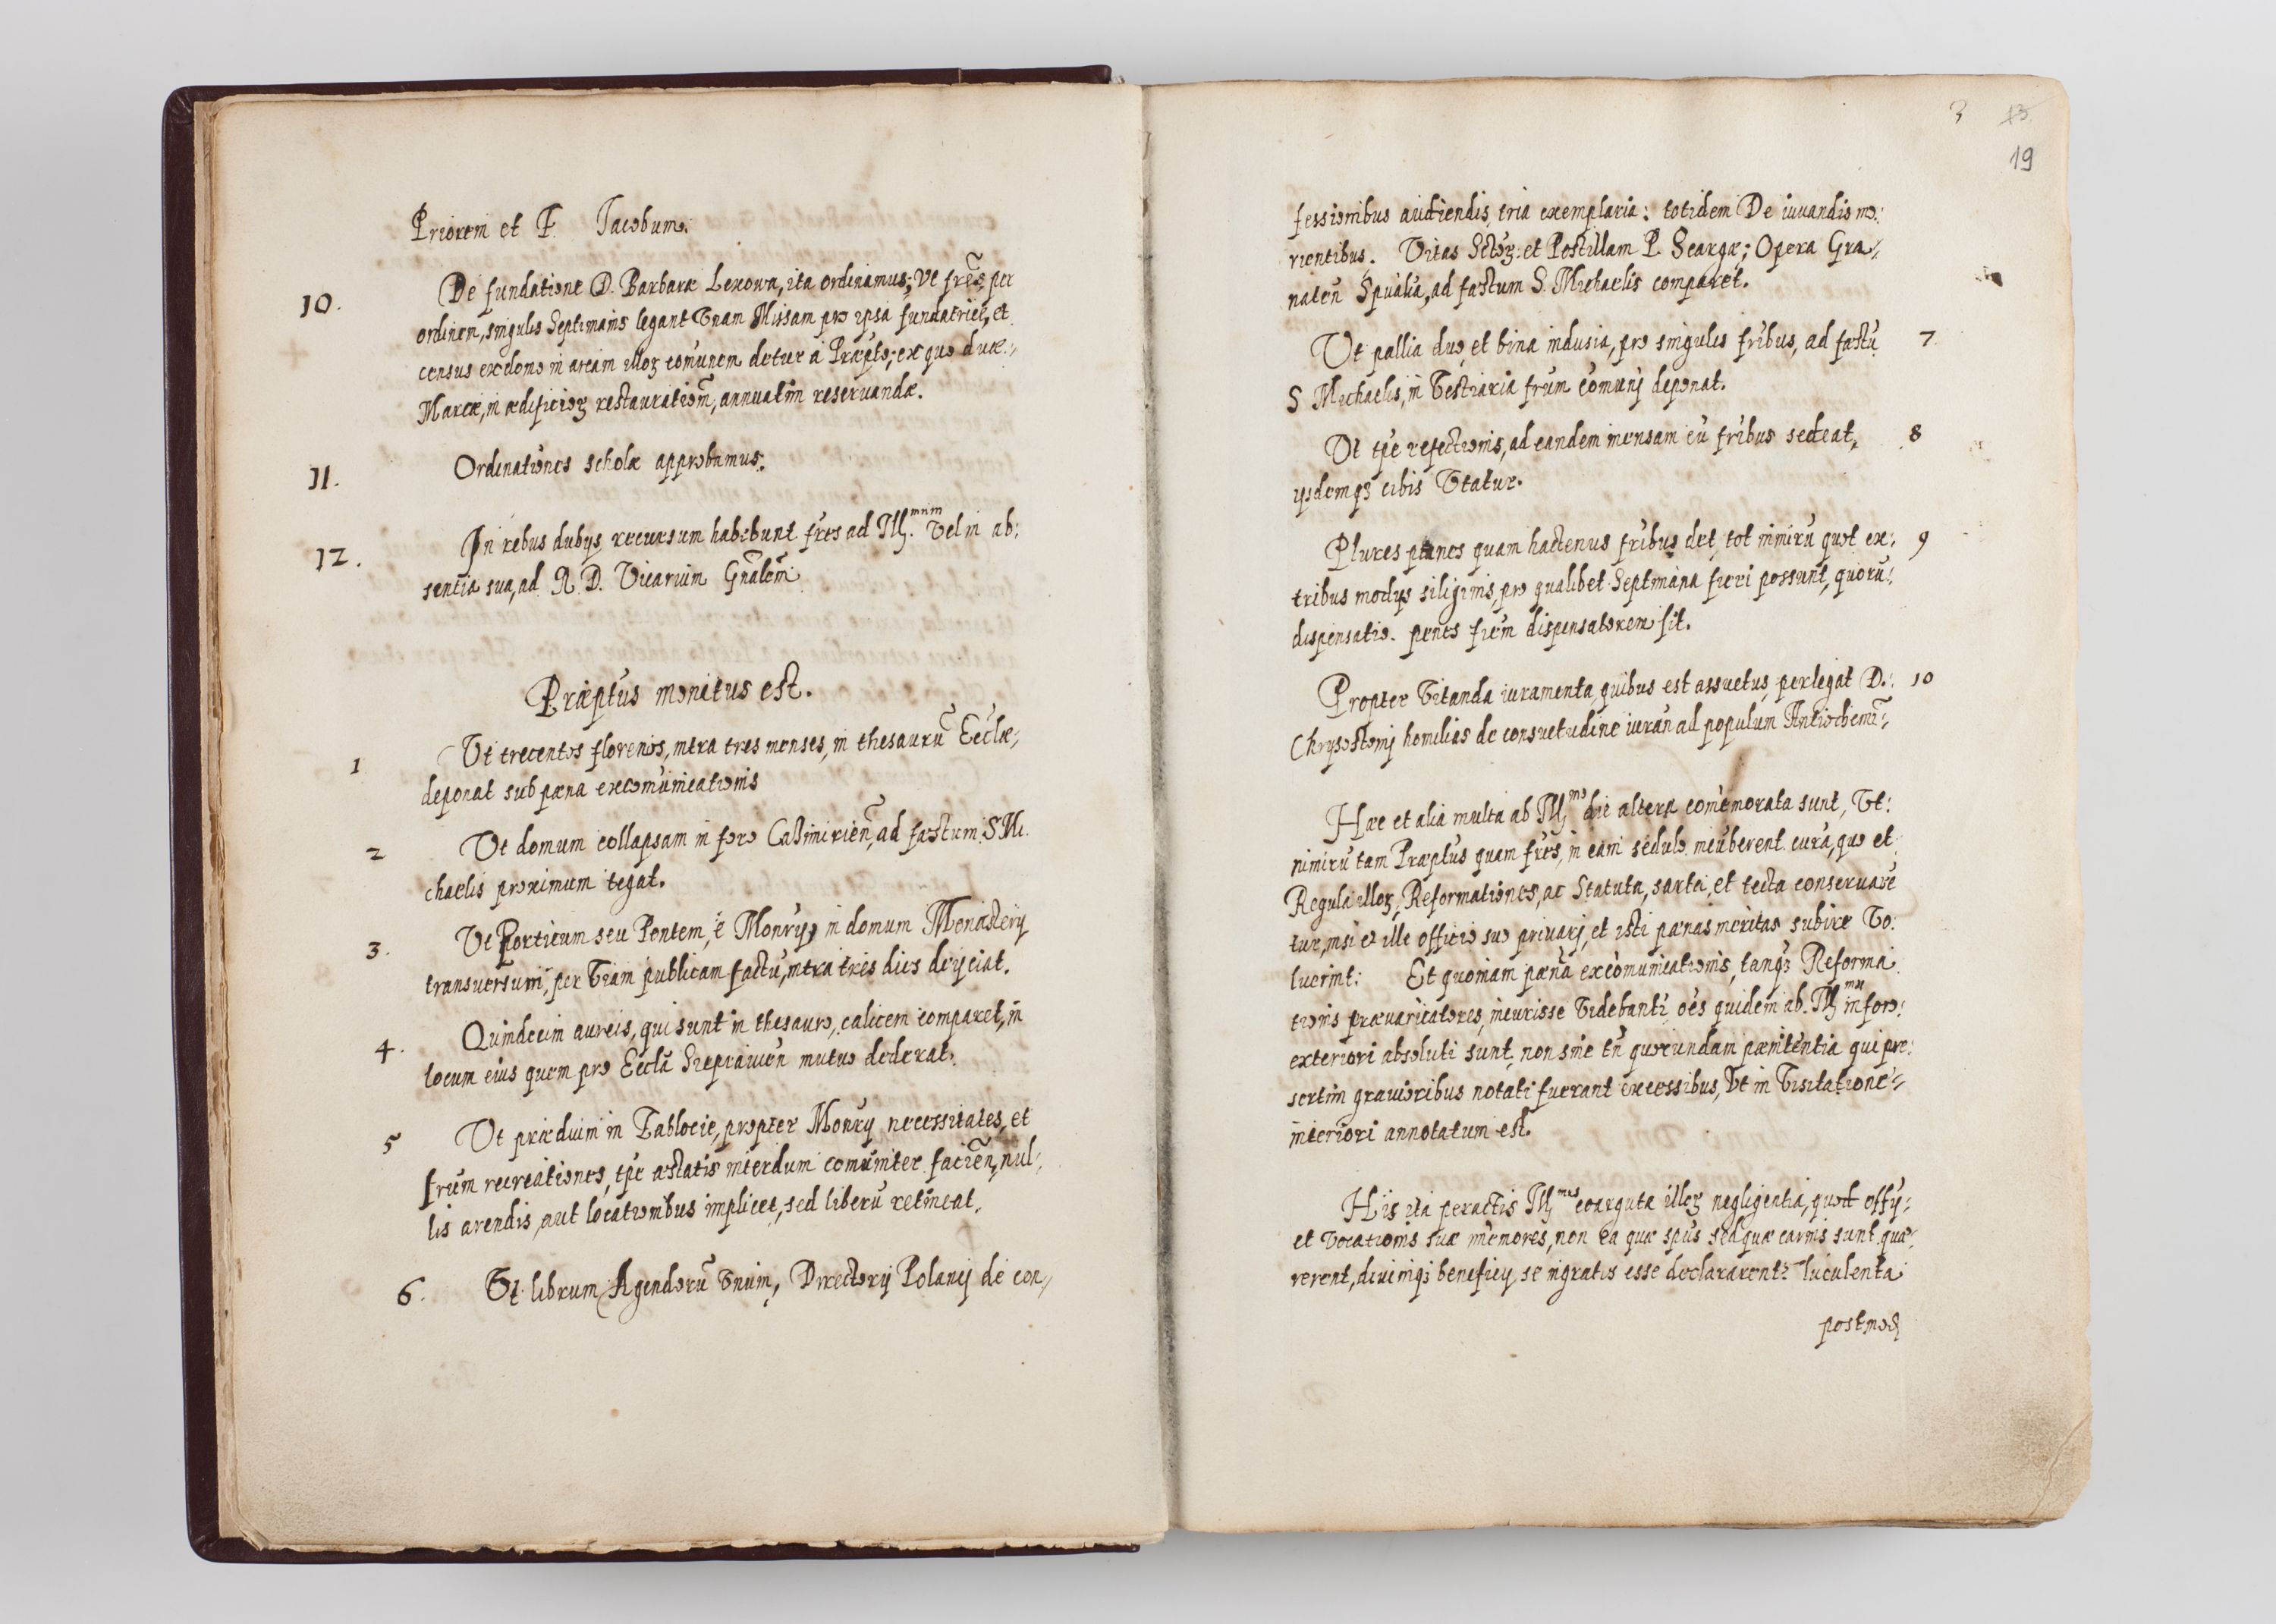 Priorem et F. Jacobum.
10. De fundatione D. Barbaræ Lexowa, ita ordinamus; Ut fr̃es per
ordinem, singulis Septimanis legant Unam Missam pro ipsa fundatrice, et
census ex domo in arcam illoꝝ com̃unem detur a Præpto; ex quo duæ
Marcæ, in ædificioꝝ restauratiom̃, annuatim reseruandæ.
11. Ordinationes scholæ approbamus.
12. In rebus dubijs recursum habebunt fr̃es ad Ill.mum Vel in ab:
sentia sua, ad R. D. Vicarium Gñalem
Præptus monitus est.
1 Ut trecentos florenos, intra tres menses, in thesaurũ Eccłæ
deponat sub pæna excom̃unicationis
2 Ut domum collapsam in foro Casimirień, ad fæstum S. Mi.
chaelis proximum tegat.
3. Ut Porticum seu Pontem, è Monrÿo in domum Monasterÿ
transuersum, per Viam publicam factũ, intra tres dies deijciat.
4. Quindecim aureis, qui sunt in thesauro, calicem comparet, in
locum eius quem pro Eccła mutuo dederat.
5 Ut prædium in Zablocie, propter Monrÿ necessitates, et
frũm recreationes, tp̃e æstatis interdum com̃uniter facień, nul:
lis arendis, aut locationibus implicet, sed liberũ retineat.
6. Ut librum Agendorũ Unum, Directorij Polanij de con
3 13
19
fessionibus audiendis tria exemplaria: totidem De iuuandis mo:
rientibus. Vitas Sctoꝝ: et Postillam P. Scargæ; Opera Gra
nateń Spũalia, ad fæstum S. Michaelis comparet.
Ut pallia duo, et bina indusia, pro singulis fribus, ad fæstũ 7
S Michaelis, in Vestiaria frũm com̃uni deponat.
Ut tp̃e refectionis, ad eandem mensam cũ fribus sedeat, 8
ijsdemqꝫ cibis Utatur.
Plures panes quam hactenus fribus det, tot nimirũ quot ex 9
tribus modijs siliginis, pro qualibet Septimana fieri possunt, quorũ
dispensatio. penes frẽm dispensatorem sit.
Propter Vitanda iuramenta, quibus est assuetus, perlegat D. 10
Chrysostomj homilias de consuetudine iurań ad populum Antiochenũ
Hæc et alia multa ab Ill.mo die altera com̃emorata sunt, Ut:
nimirũ tam Præptus quam fr̃es, in eam sedulo incũberent curã, quo et
Regula illoꝝ, Reformationes, ac Statuta, sarta, et tecta conseruare
tur, nisi et ille officio suo priuarj, et isti pænas meritas subire Vo:
luerint: Et quoniam pænã excom̃unicationis, tanqꝫ Reforma
tionis præuaricatores, incurisse Videbantr̃ oẽs quidem ab Ill.mo in foro
exteriori absoluti sunt, non sine tñ quorundam pænitentia qui præ:
sertim grauioribus notati fuerant excessibus, Ut in Visitatione
interiori annotatum est.
His ita peractis Ill.mus coarguta illoꝝ negligentia, quod offij:
et Vocationis suæ im̃emores, non ea quæ spũs sed quæ carnis sunt quæ
rerent, diuiniqꝫ beneficij se ingratos esse declararentr̃ luculenta
postmod